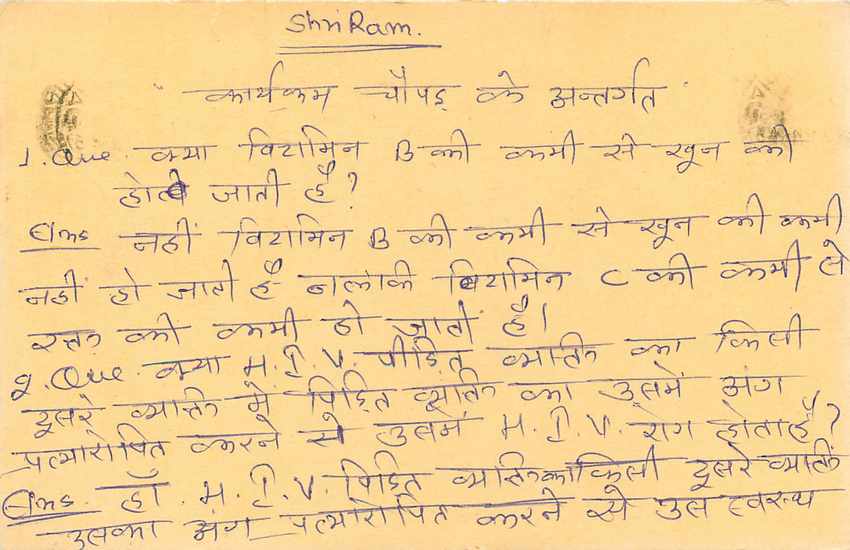 Shri Ram.
कार्यक्रम चौपड़ के अन्तर्गत
1. Que. क्या विटामिन B की कमी से खून की
होती जाती है?
Ans नहीं विटामिन B की कमी से खून की कमी
नहीं हो जाती है बलकि विटामिन C की कमी से
रक्त की कमी हो जाती है।
2. Que. क्या H.I.V. पीड़ित व्यक्ति का किसी
दूसरे व्यक्ति में पिड़ित व्यक्ति का उसमें अंग
प्रत्यारोपित करने से उसमें H.I.V. रोग होता है?
Ans. हाँ. H.I.V. पिड़ित व्यक्ति का किसी दूसरे व्यक्ति
उसका अंग प्रत्यारोपित करने से उस स्वस्थ